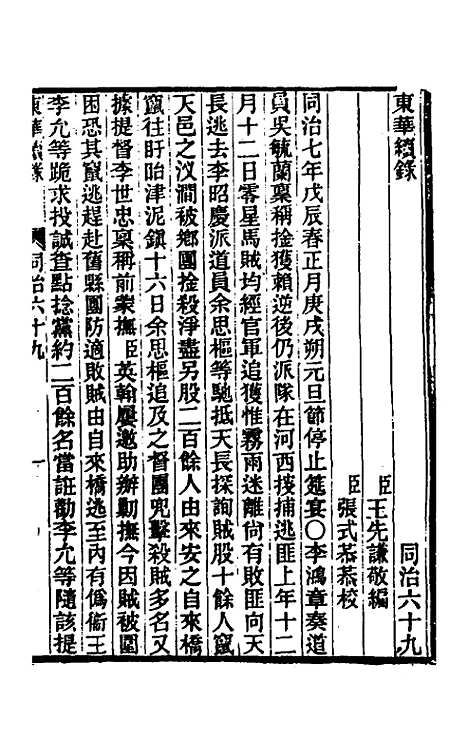 東華續錄 同治六十九
臣王先謙敬編
臣張式恭恭校
同治七年戊辰春正月庚戌朔元旦節停止筵宴○李鴻章奏道
員吳毓蘭稟稱擒獲賴逆後仍派隊在河西搜捕逃匪上年十二
月十二日零星馬賊均經官軍追獲惟霧雨迷離尚有敗匪向天
長逃去李昭慶派道員余思樞等馳抵天長探詢賊股十餘人竄
天邑之汊澗被鄉團捦殺淨盡另股二百餘人由來安之自來橋
竄往盱眙津泥鎮十六日余思樞追及之督團兜擊殺賊多名又
據提督李世忠稟稱前蒙撫臣英翰屢邀助辦勦撫今因賊被圍
困恐其竄逃趕赴舊縣團防適敗賊由自來橋逃至內有偽衞王
李允等跪求投誠查點捻黨約二百餘名當詿勸李允等隨該提
東華續錄 同治六十九 一